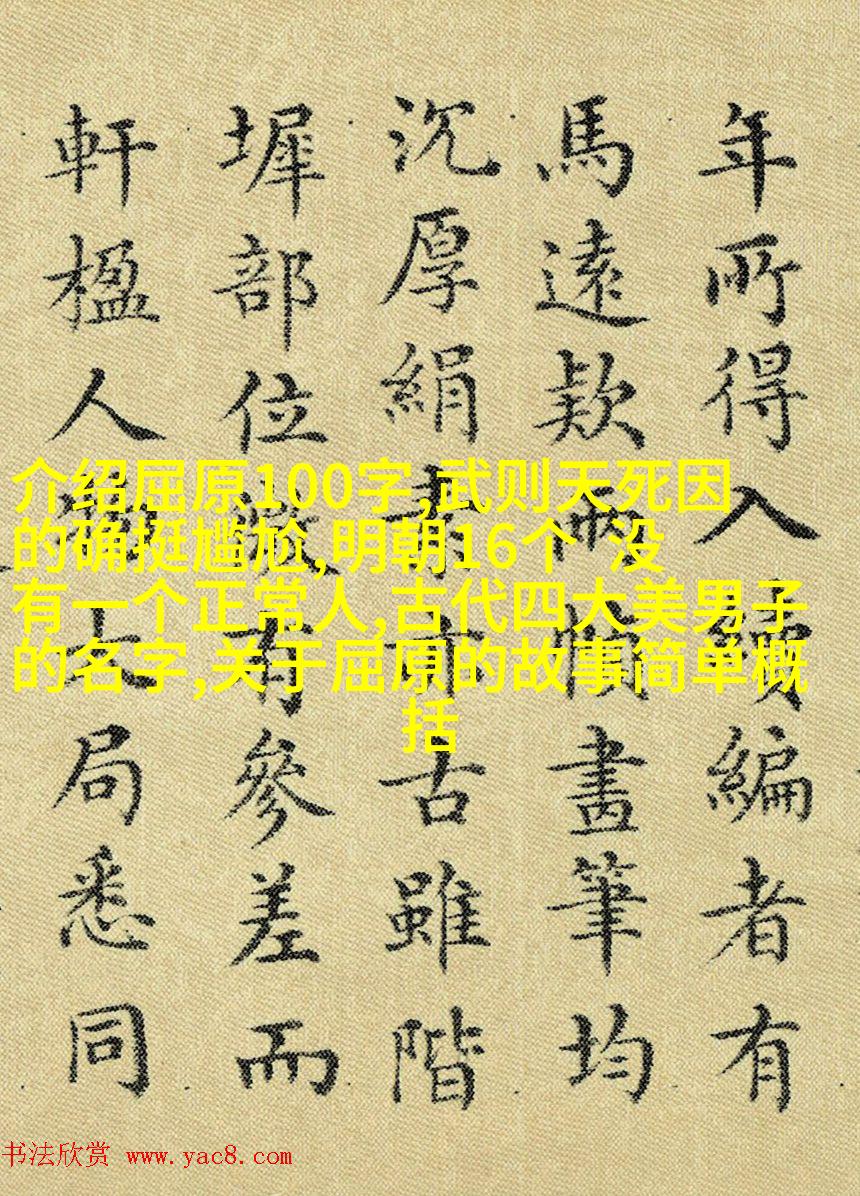 年所得入續編者有
馬遠欵兩幀畫筆均
沉厚絹素亦古雖階
墀部位微有參差而
軒楹人物大局悉同
介绍屈原100字,武则天死因
的确挺尴尬,明朝16个 没
有一个正常人,古代四大美男子
的名字,关于屈原的故事简单概
括
书法欣赏 www.yac8.com